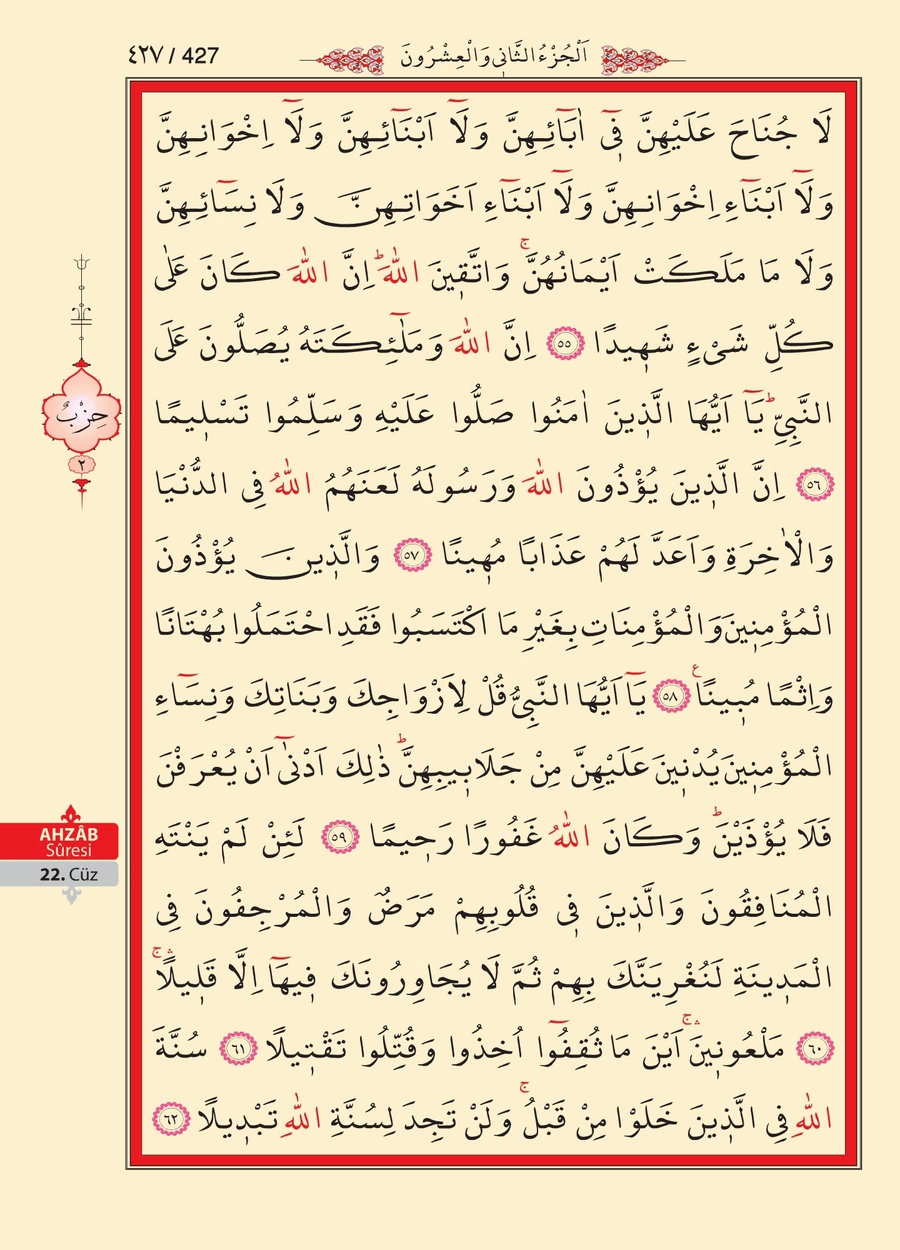 ٤٢٧ / 427
اَلْجُزْءُ الثَّانِي وَالْعِشْرُونَ
لَا جُنَاحَ عَلَيْهِنَّ فٖٓي اٰبَٓائِهِنَّ وَلَٓا اَبْنَٓائِهِنَّ وَلَٓا اِخْوَانِهِنَّ
وَلَٓا اَبْنَٓاءِ اِخْوَانِهِنَّ وَلَٓا اَبْنَٓاءِ اَخَوَاتِهِنَّ وَلَا نِسَٓائِهِنَّ
وَلَا مَا مَلَكَتْ اَيْمَانُهُنَّۚ وَاتَّقٖينَ اللّٰهَۜ اِنَّ اللّٰهَ كَانَ عَلٰى
كُلِّ شَيْءٍ شَهٖيدًا ٥٥ اِنَّ اللّٰهَ وَمَلٰٓئِكَتَهُ يُصَلُّونَ عَلَى
النَّبِيِّۜ يَٓا اَيُّهَا الَّذٖينَ اٰمَنُوا صَلُّوا عَلَيْهِ وَسَلِّمُوا تَسْلٖيمًا
٥٦ اِنَّ الَّذٖينَ يُؤْذُونَ اللّٰهَ وَرَسُولَهُ لَعَنَهُمُ اللّٰهُ فِي الدُّنْيَا
وَالْاٰخِرَةِ وَاَعَدَّ لَهُمْ عَذَابًا مُهٖينًا ٥٧ وَالَّذٖينَ يُؤْذُونَ
الْمُؤْمِنٖينَ وَالْمُؤْمِنَاتِ بِغَيْرِ مَا اكْتَسَبُوا فَقَدِ احْتَمَلُوا بُهْتَانًا
وَاِثْمًا مُبٖينًاࣖ ٥٨ يَٓا اَيُّهَا النَّبِيُّ قُلْ لِاَزْوَاجِكَ وَبَنَاتِكَ وَنِسَٓاءِ
الْمُؤْمِنٖينَ يُدْنٖينَ عَلَيْهِنَّ مِنْ جَلَابٖيبِهِنَّۜ ذٰلِكَ اَدْنٰٓى اَنْ يُعْرَفْنَ
فَلَا يُؤْذَيْنَۜ وَكَانَ اللّٰهُ غَفُورًا رَحٖيمًا ٥٩ لَئِنْ لَمْ يَنْتَهِ
الْمُنَافِقُونَ وَالَّذٖينَ فٖي قُلُوبِهِمْ مَرَضٌ وَالْمُرْجِفُونَ فِي
الْمَدٖينَةِ لَنُغْرِيَنَّكَ بِهِمْ ثُمَّ لَا يُجَاوِرُونَكَ فٖيهَٓا اِلَّا قَلٖيلًاۛۚ
٦٠ مَلْعُونٖينَۛۚ اَيْنَ مَا ثُقِفُٓوا اُخِذُوا وَقُتِّلُوا تَقْتٖيلًا ٦١ سُنَّةَ
اللّٰهِ فِي الَّذٖينَ خَلَوْا مِنْ قَبْلُۚ وَلَنْ تَجِدَ لِسُنَّةِ اللّٰهِ تَبْدٖيلًا ٦٢
حِزْبٌ
٢
AHZÂB
Sûresi
22. Cüz